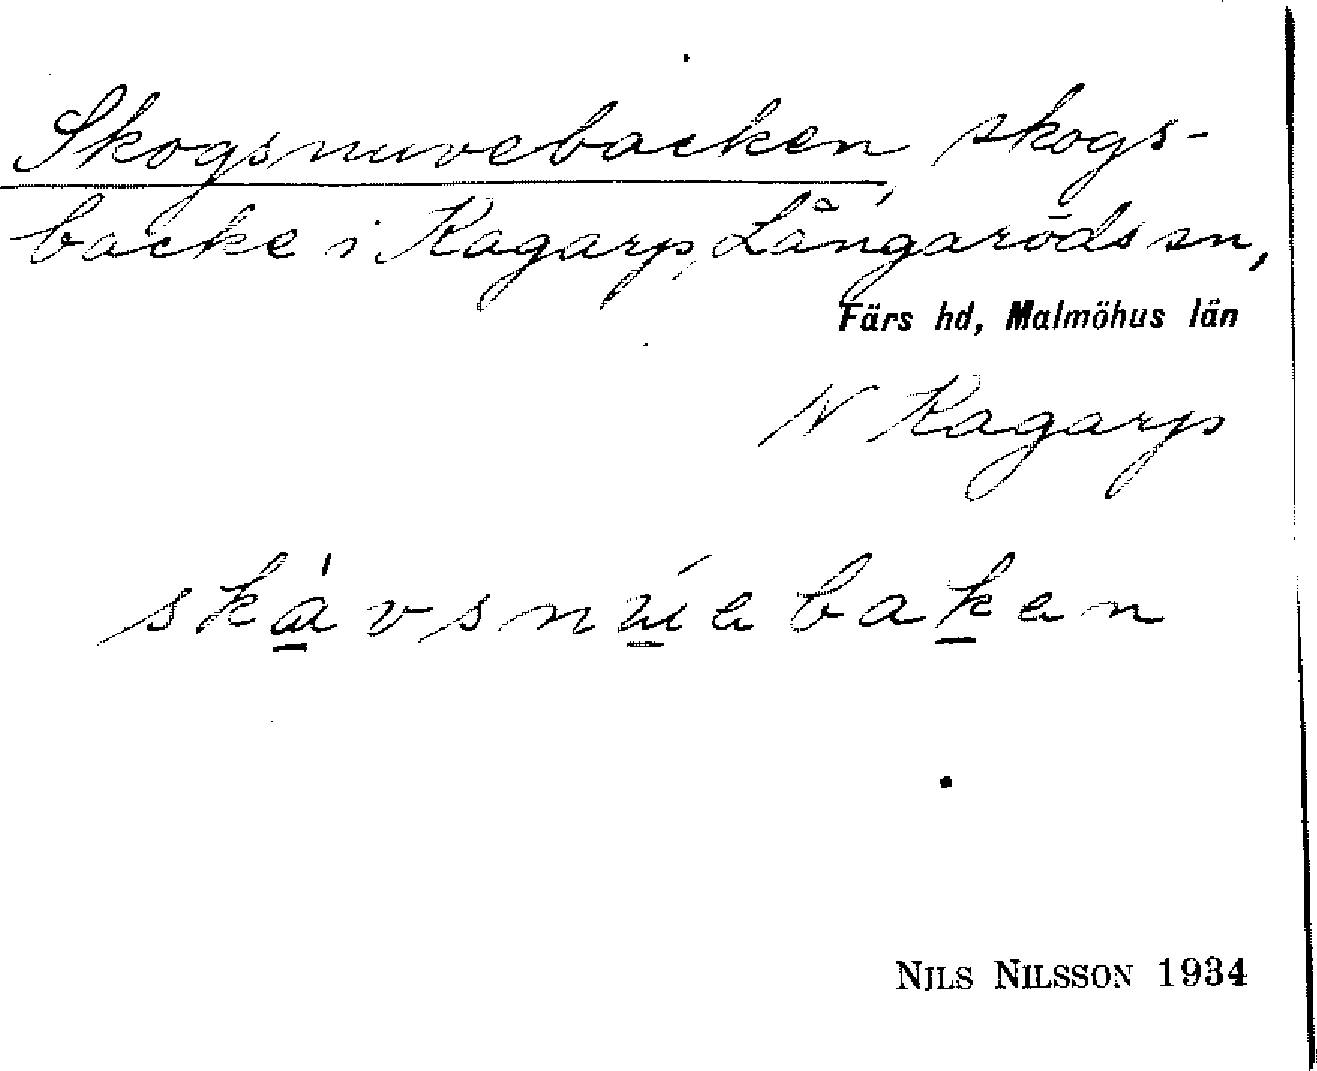 Skogsnuvebacken, skogs-
backe i Kagarp, Långaröds sn,
Färs hd, Malmöhus län
N Kagarp
skávsnúebaken
NILS NILSSON 1934